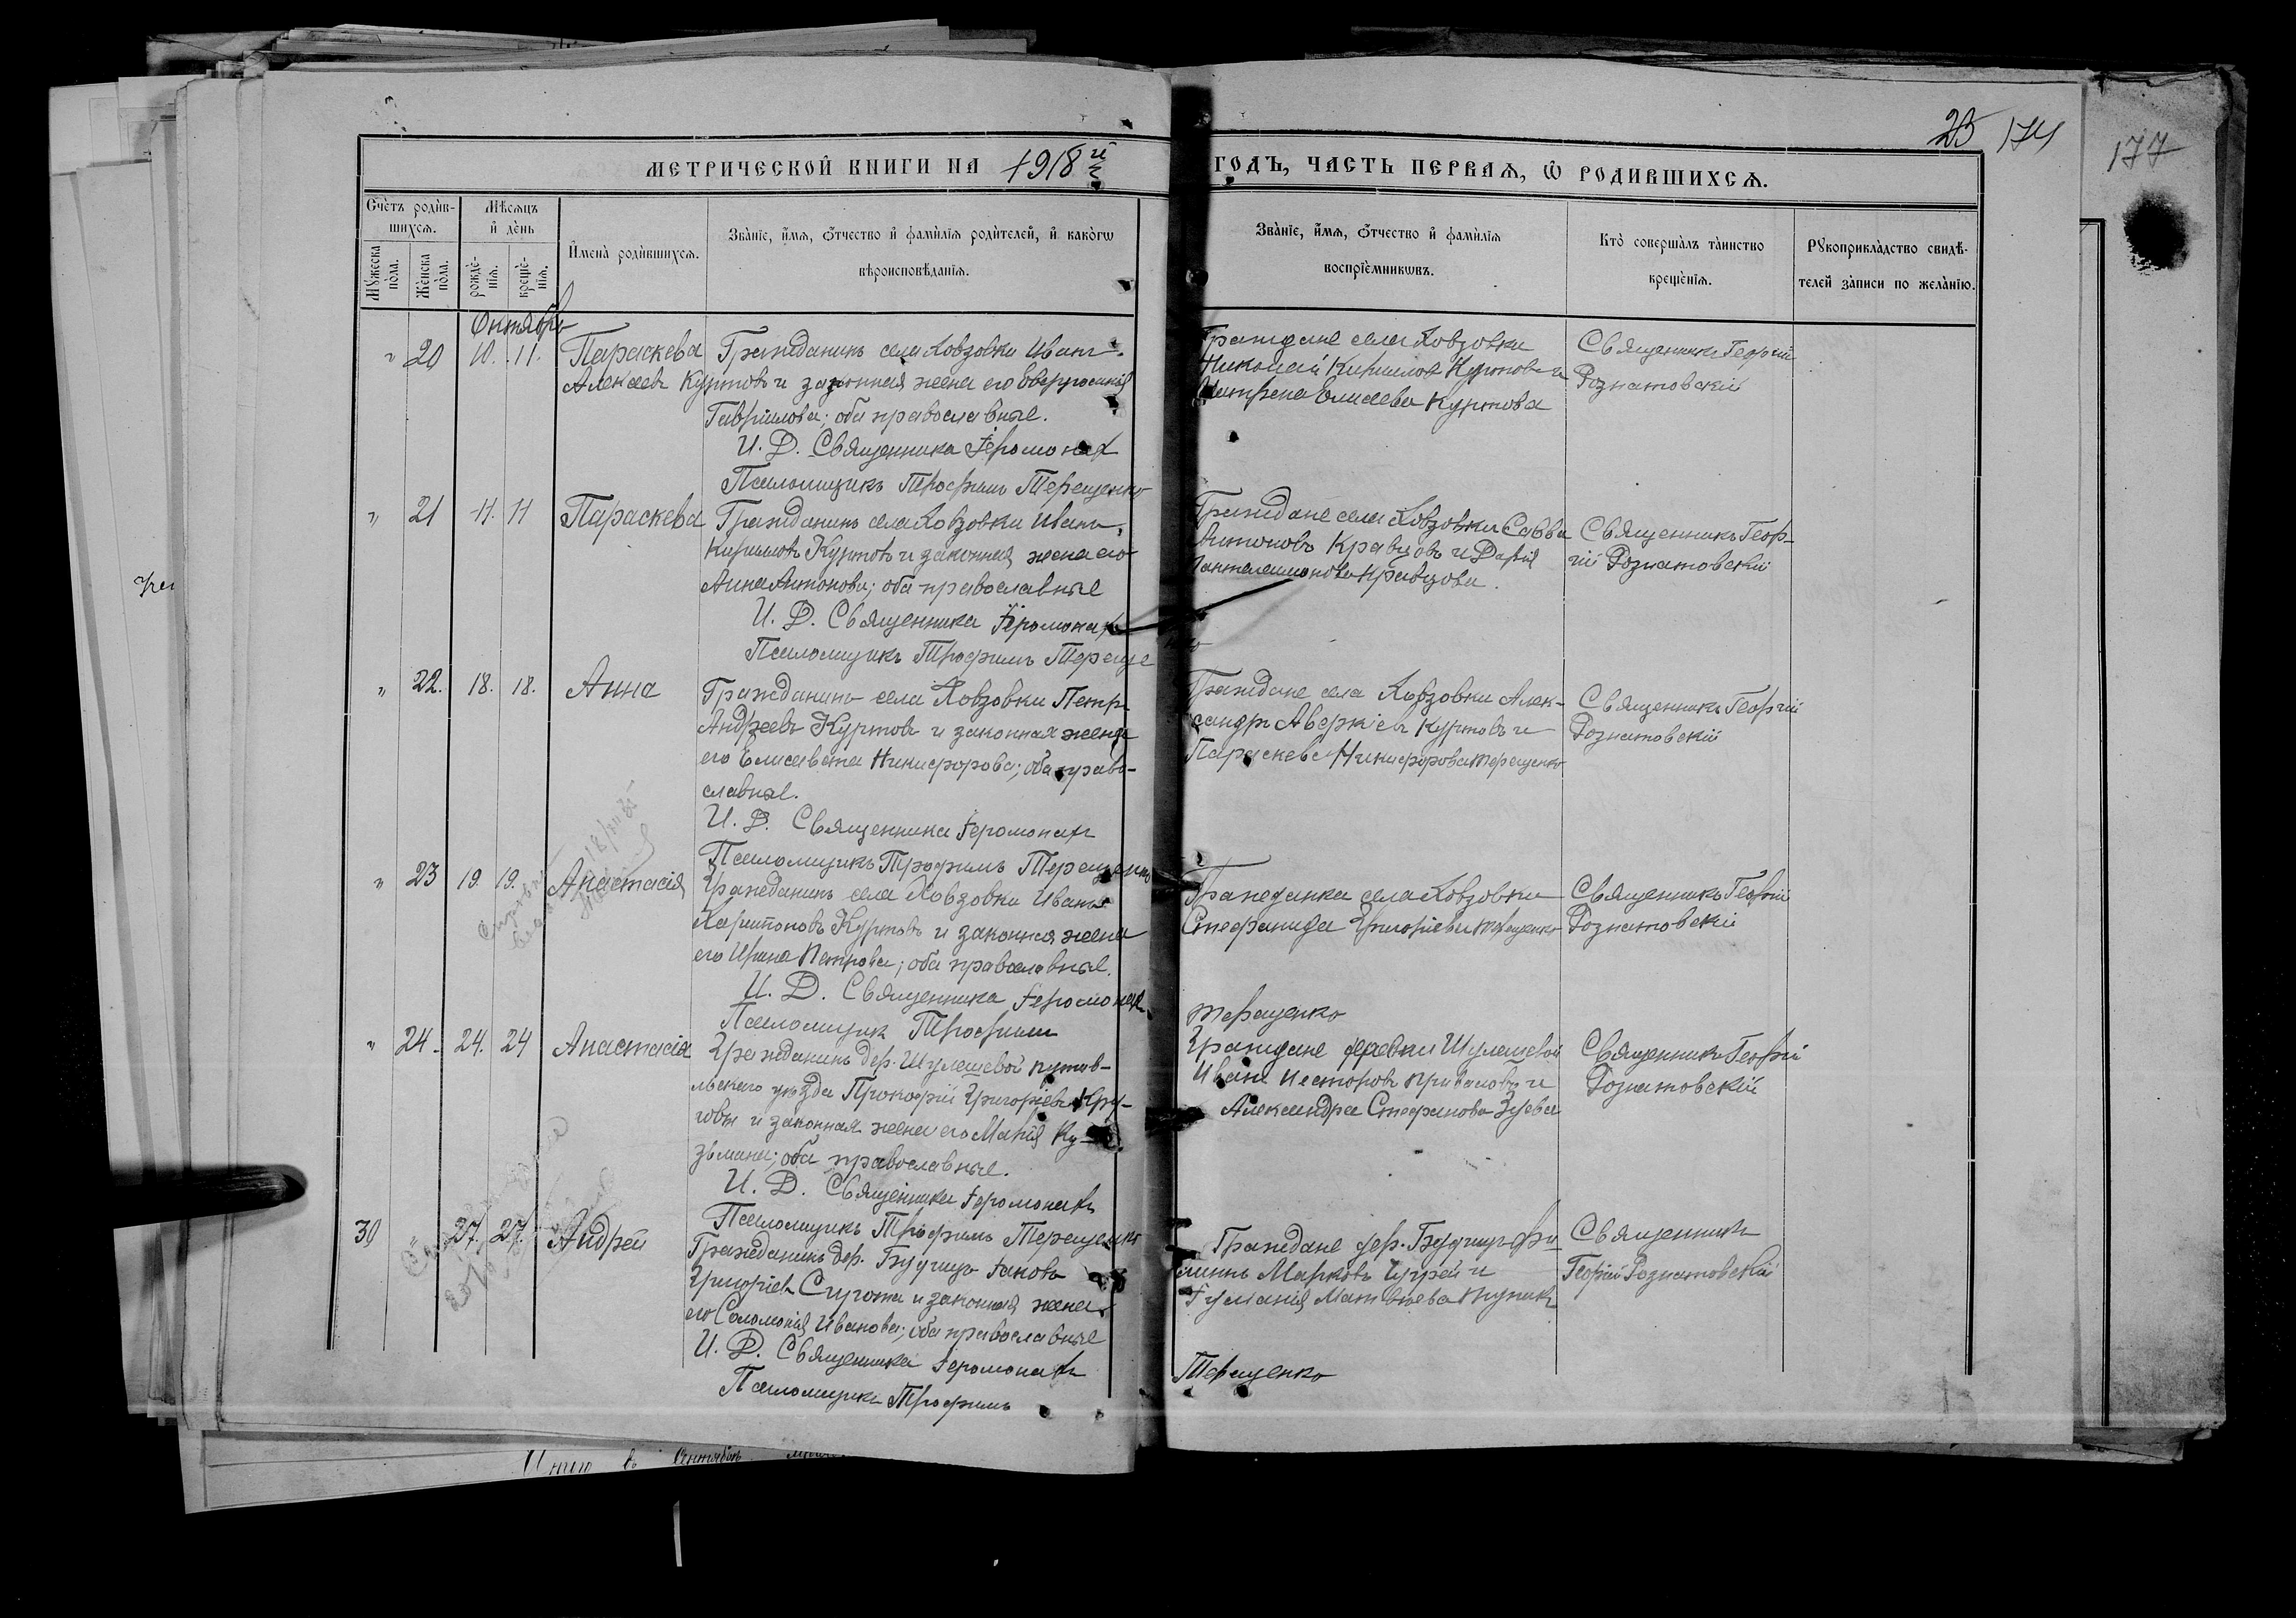 25 174
177
МЕТРИЧЕСКОЙ КНИГИ НА 1918 й ГОДЪ, ЧАСТЬ ПЕРВАѦ, Ѡ РОДИВШИХСѦ.
Счетъ родив-
шихсѧ.
Мужеска
пола.
Женска
пола.
Мѣсѧцъ
и день
рожде-
ніѧ.
креще-
ніѧ.
Имена родившихсѧ.
Званіе, имѧ, ѻтчество и фамиліѧ родителей, и какогѡ
вѣроисповѣданіѧ.
Званіе, имѧ, ѻтчество и фамиліѧ
воспріемникѡвъ.
Кто совершалъ таинство
крещеніѧ.
Рукоприкладство свидѣ-
телей записи по желанію.
Октябрь
" 20 10. 11. Параскева
Гражданинъ села Ховзовки Иванъ
Алексѣевъ Куртовъ и законная жена его Евфросинія
Гавріилова; оба православные.
И. Д. Священника Іеромонах
Псаломщикъ Трофимъ Терещенко
Граждане села Ховзовки
Николай Кирилловъ Куртовъ и
Матрена Елисеева Куртова
Священникъ Георгій
Рознатовскій
" 21 11. 11 Параскева
Гражданинъ села Ховзовки Иванъ
Кирилловъ Куртовъ и законная жена его
Анна Антонова; оба православные
И. Д. Священника Іеромонах
Псаломщикъ Трофимъ Тереще
Граждане села Ховзовки Савва
Антоновъ Кравцовъ и Дарія
Пантелеимонова Кравцова.
Священникъ Геор-
гій Рознатовскій
" 22. 18. 18. Анна
Гражданинъ села Ховзовки Петръ
Андреевъ Куртовъ и законная жена
его Елисавета Никифорова; оба право-
славные.
И. Д. Священника Іеромонахъ
Псаломщикъ Трофимъ Терещенко
Граждане села Ховзовки Алек-
сандръ Аверкіевъ Куртовъ и
Параскева Никифорова Терещенко
Священникъ Георгій
Рознатовскій
" 23 19. 19. Анастасія
Гражданинъ села Ховзовки Иванъ
Харитоновъ Куртовъ и законная жена
его Ирина Петрова; оба православные.
И. Д. Священника Іеромонах
Псаломщик Трофимъ
Терещенко
Гражданка села Ховзовки
Стефанида Григоріева Терещенко
Священникъ Георгій
Рознатовскій
" 24. 24. 24 Анастасія
Гражданинъ дер. Шулешевой Путив-
льскаго уѣзда Прокофій Григоріевъ Кру-
говы и законная жена его Марія Ку-
зьмина; оба православные.
И. Д. Священника Іеромонахъ
Псаломщикъ Трофимъ Терещенко
Граждане деревни Шулешевой
Иванъ Несторовъ Приваловъ и
Александра Стефанова Зуева
Священникъ Георгій
Рознатовскій
30 " 27. 27. Андрей
Гражданинъ дер. Іаковъ
Григоріевъ и законная жена
его Соломонія Иванова; оба православные
И. Д. Священника Іеромонахъ
Псаломщикъ Трофимъ
Терещенко
Граждане дер.
Марковъ и
Іуліанія Матвѣева
Священникъ
Георгій Рознатовскій